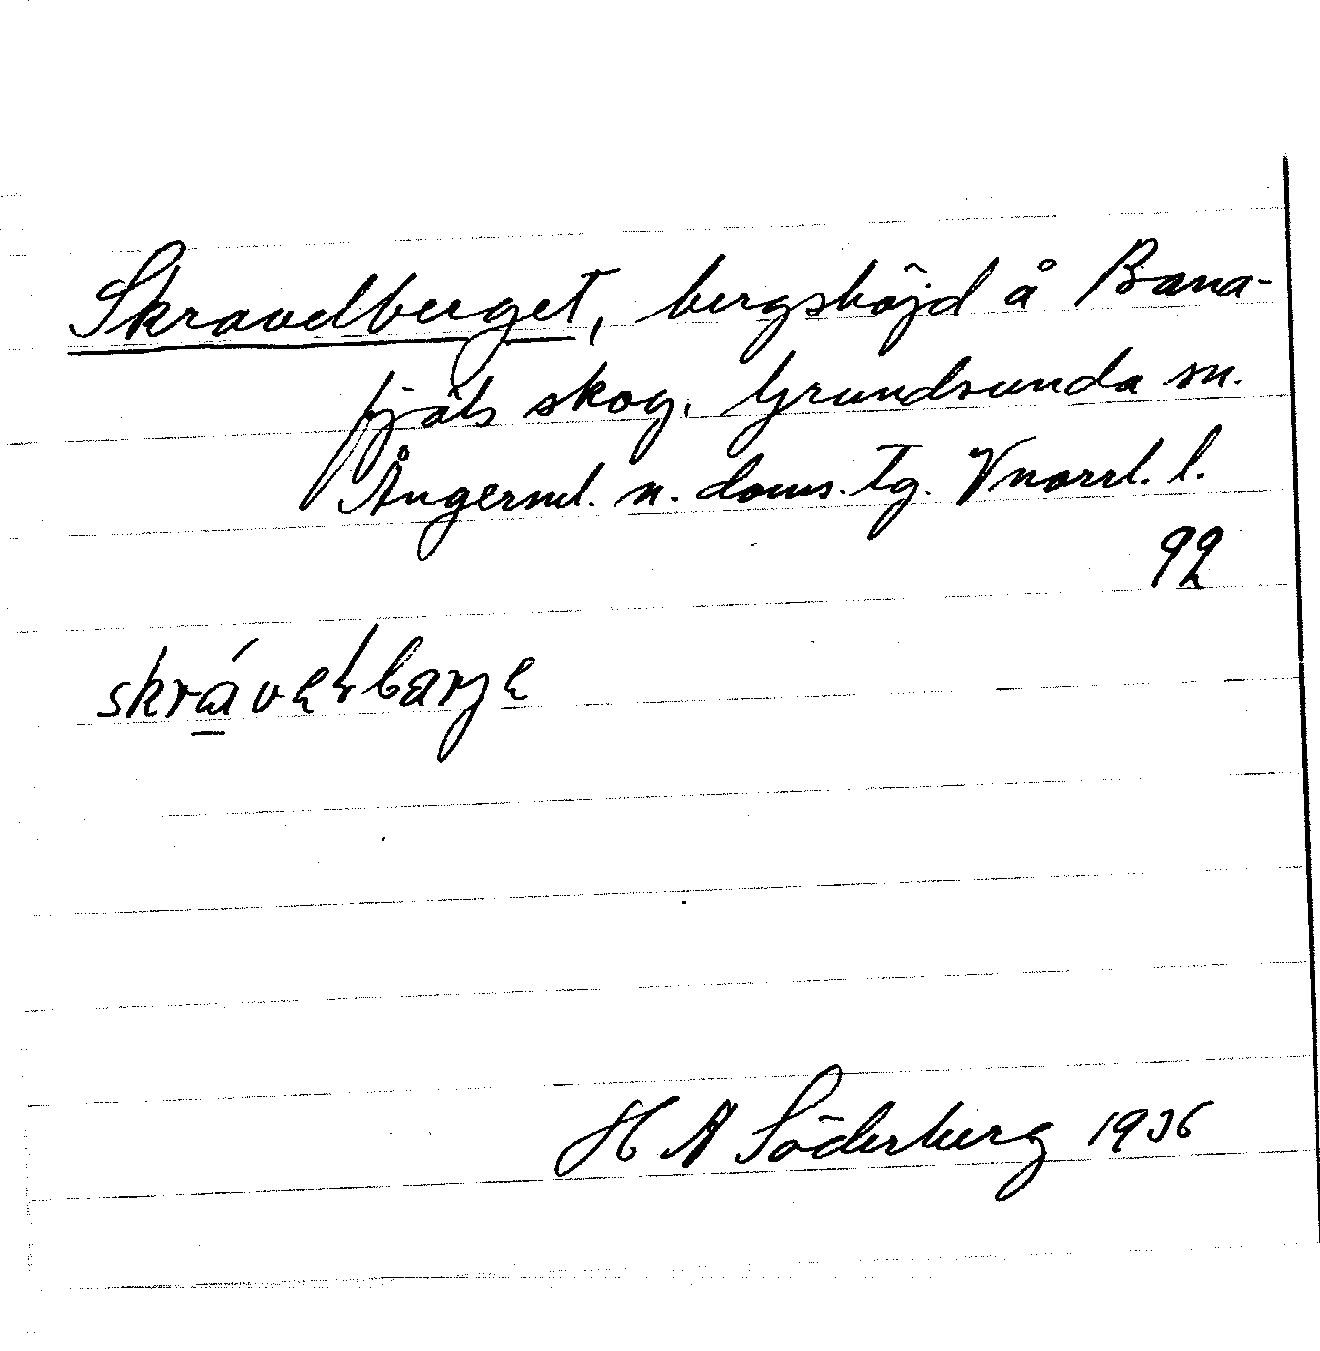 Skravelberget, bergshöjd å Bana-
fjäls skog. Grundsunda sn.
Ångerml. n. doms. tg. Vnorrl. l.
92
H A Söderberg 1936